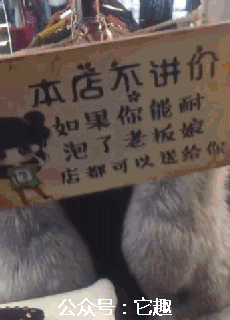 本店不讲价
如果你能耐
泡了老板娘
店都可以送给你
公众号：它趣